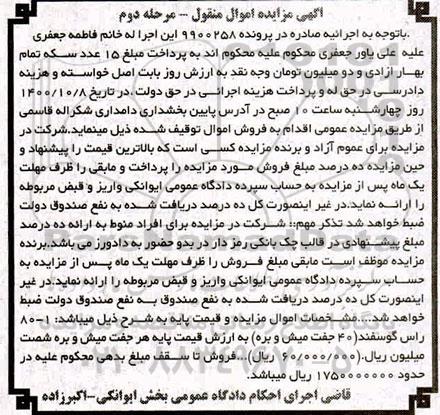 آگهی مزایده اموال منقول -- مرحله دوم
.باتوجه به اجرائیه صادره در پرونده ۹۹۰۰۲۵۸ این اجرا له خانم فاطمه جعفری
علیه علی یاور جعفری محکوم علیه محکوم اند به پرداخت مبلغ ۱۵ عدد سکه تمام
بهار آزادی و دو میلیون تومان وجه نقد به ارزش روز بابت اصل خواسته و هزینه
دادرسی در حق له و پرداخت هزینه اجرائی در حق دولت ،در تاریخ ۱۴۰۰/۱۰/۸
روز چهارشنبه ساعت ۱۰ صبح در آدرس پایین بخشداری دامداری شکراله قاسمی
از طریق مزایده عمومی اقدام به فروش اموال توقیف شده ذیل مینماید.شرکت در
مزایده برای عموم آزاد و برنده مزایده کسی است که بالاترین قیمت را پیشنهاد و
حین مزایده ده درصد مبلغ فروش مورد مزایده را پرداخت و مابقی را ظرف مهلت
یک ماه پس از مزایده به حساب سپرده دادگاه عمومی ایوانکی واریز و قبض مربوطه
را ارائه نماید.در غیر اینصورت کل ده درصد دریافت شده به نفع صندوق دولت
ضبط خواهد شد تذکر مهم:: شرکت در مزایده برای افراد منوط به ارائه ده درصد
مبلغ پیشنهادی در قالب چک بانکی رمز دار در بدو حضور به دادورز می باشد.برنده
مزایده موظف است مابقی مبلغ فروش را ظرف مهلت یک ماه پس از مزایده به
حساب سپرده دادگاه عمومی ایوانکی واریز و قبض مربوطه را ارائه نماید.در غیر
اینصورت کل ده درصد دریافت شده به نفع صندوق به نفع صندوق دولت ضبط
خواهد شد...مشخصات اموال مزایده و قیمت پایه به شرح ذیل میباشد: ۱-۸۰
راس گوسفند(۴۰ جفت میش و بره) به ارزش قیمت پایه هر جفت میش و بره شصت
میلیون ریال.(۶۰/۰۰۰/۰۰۰ ریال)...فروش تا سقف مبلغ بدهی محکوم علیه در
حدود ۱۷۵۰۰۰۰۰۰۰ ریال میباشد.
قاضی اجرای احکام دادگاه عمومی بخش ایوانکی-اکبرزاده